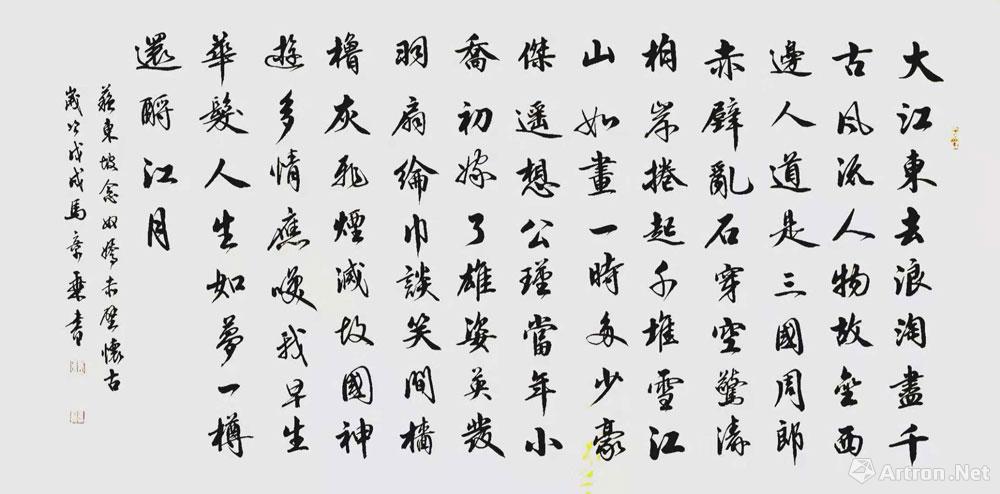 大江東去浪淘盡千
古風流人物故壘西
邊人道是三國周郎
赤壁亂石穿空驚濤
拍岸捲起千堆雪江
山如畫一時多少豪
傑遥想公瑾當年小
喬初嫁了雄姿英發
羽扇綸巾談笑間檣
櫓灰飛煙滅故國神
遊多情應笑我早生
華髮人生如夢一樽
還酹江月
蘇東坡念奴嬌赤壁懷古
歲戊戌馬書
Artron.Net